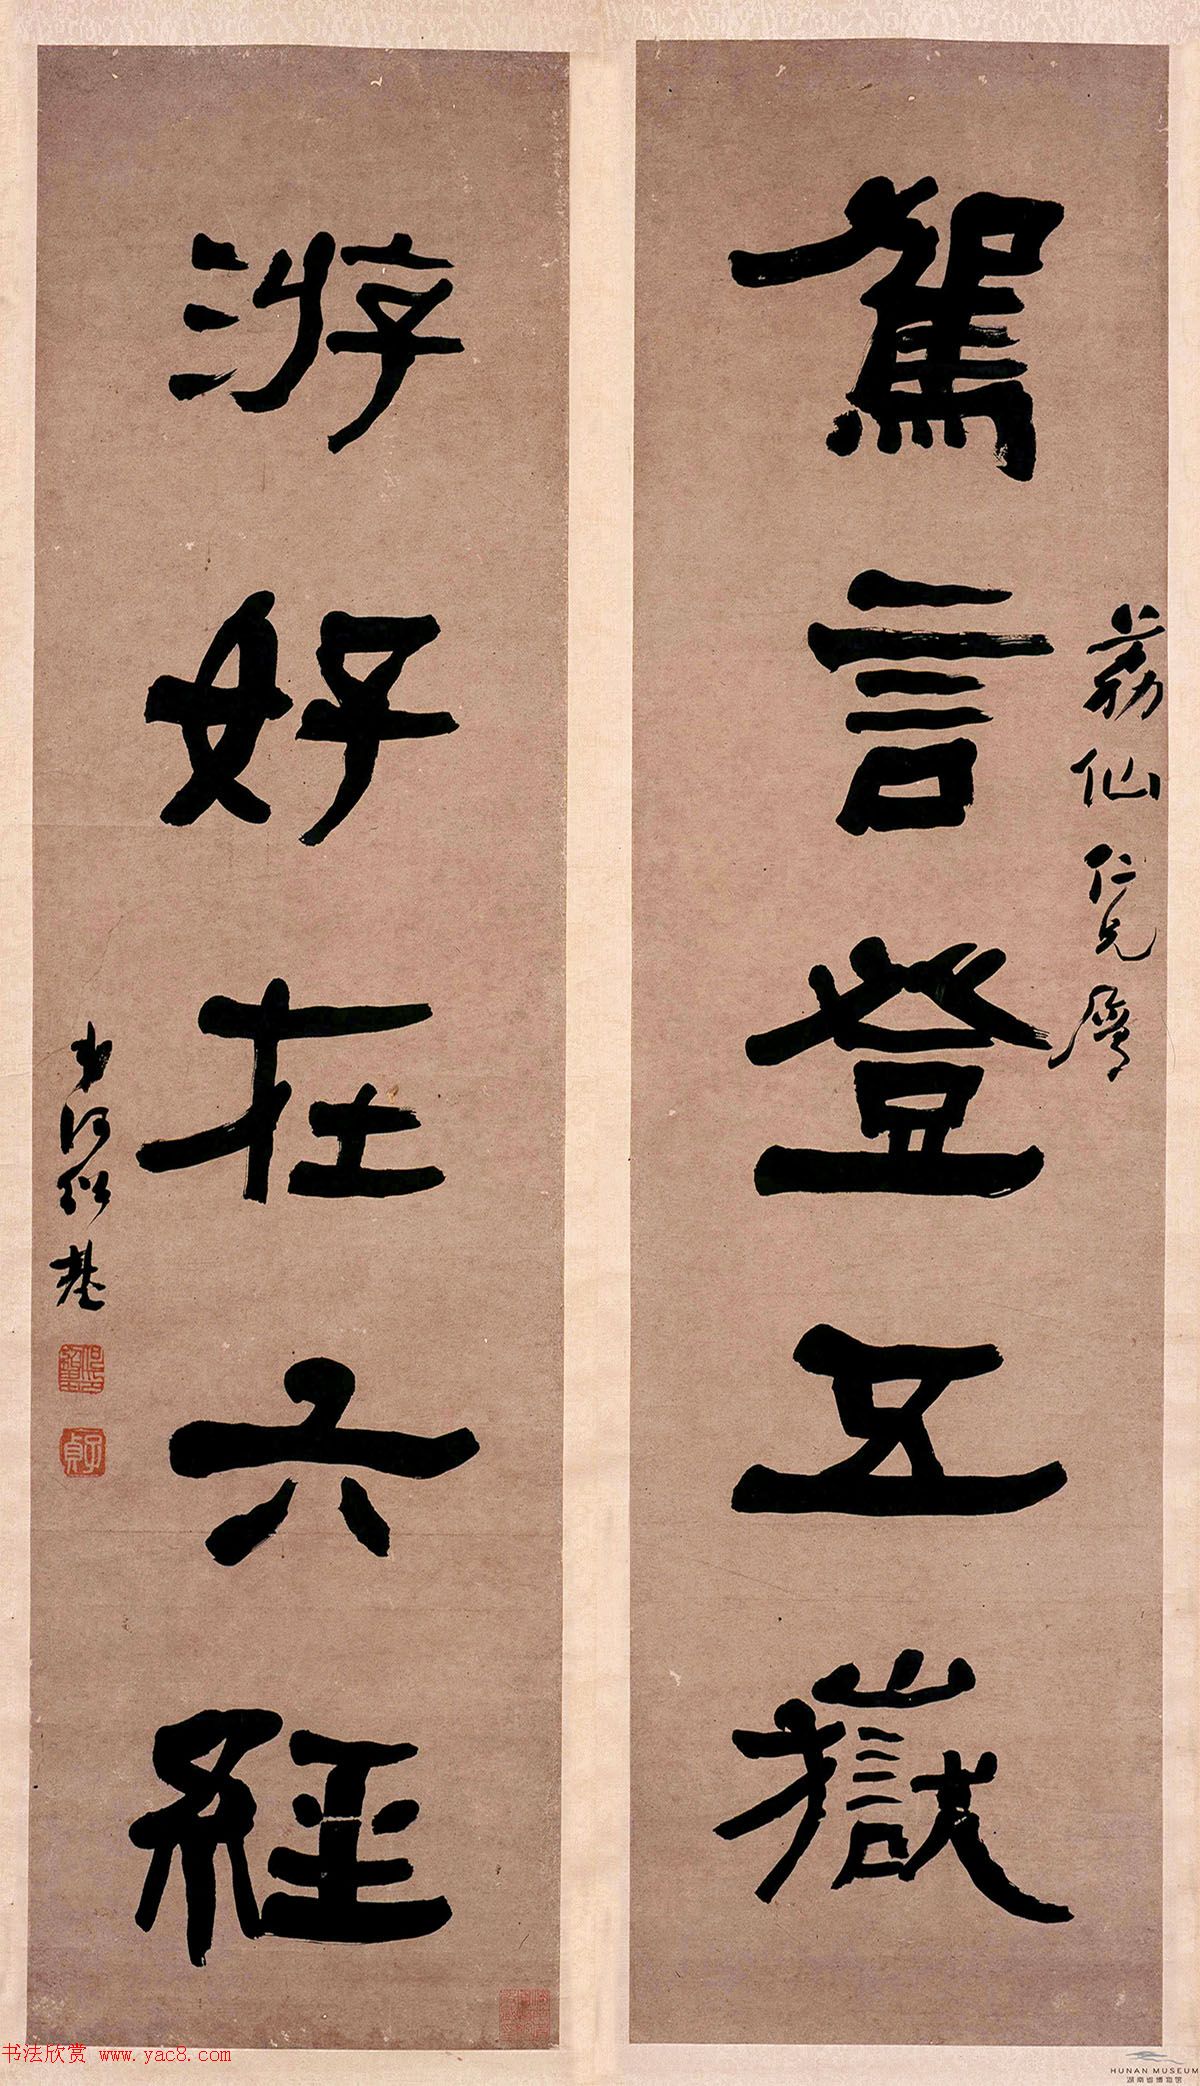 荔仙仁兄屬
駕言登五嶽
游好在六經
弟何紹基
子貞
书法欣赏 www.yac8.com
HUNAN MUSEUM
湖南省博物馆